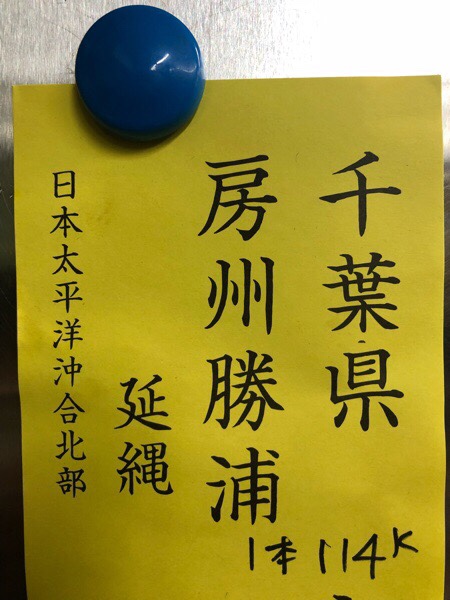 千葉県
房州勝浦
延縄
日本太平洋沖合北部
1本 114K